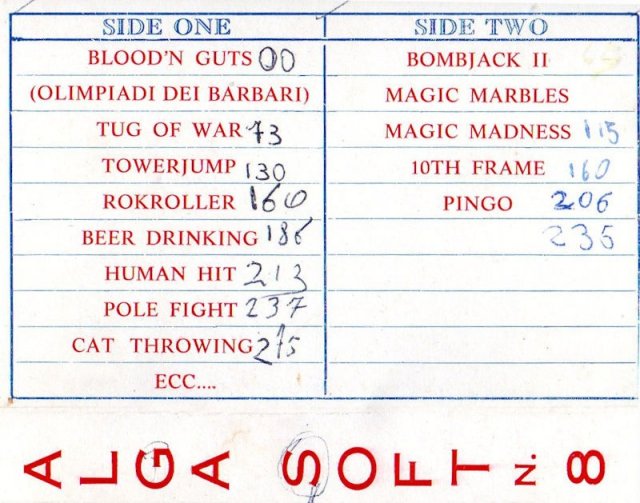 SIDE ONE
BLOOD'N GUTS 00
(OLIMPIADI DEI BARBARI)
TUG OF WAR 73
TOWERJUMP 130
ROKROLLER 160
BEER DRINKING 186
HUMAN HIT 213
POLE FIGHT 237
CAT THROWING 275
ECC....
SIDE TWO
BOMBJACK II
MAGIC MARBLES
MAGIC MADNESS 115
10TH FRAME 160
PINGO 206
235
ALGA SOFT N. 8